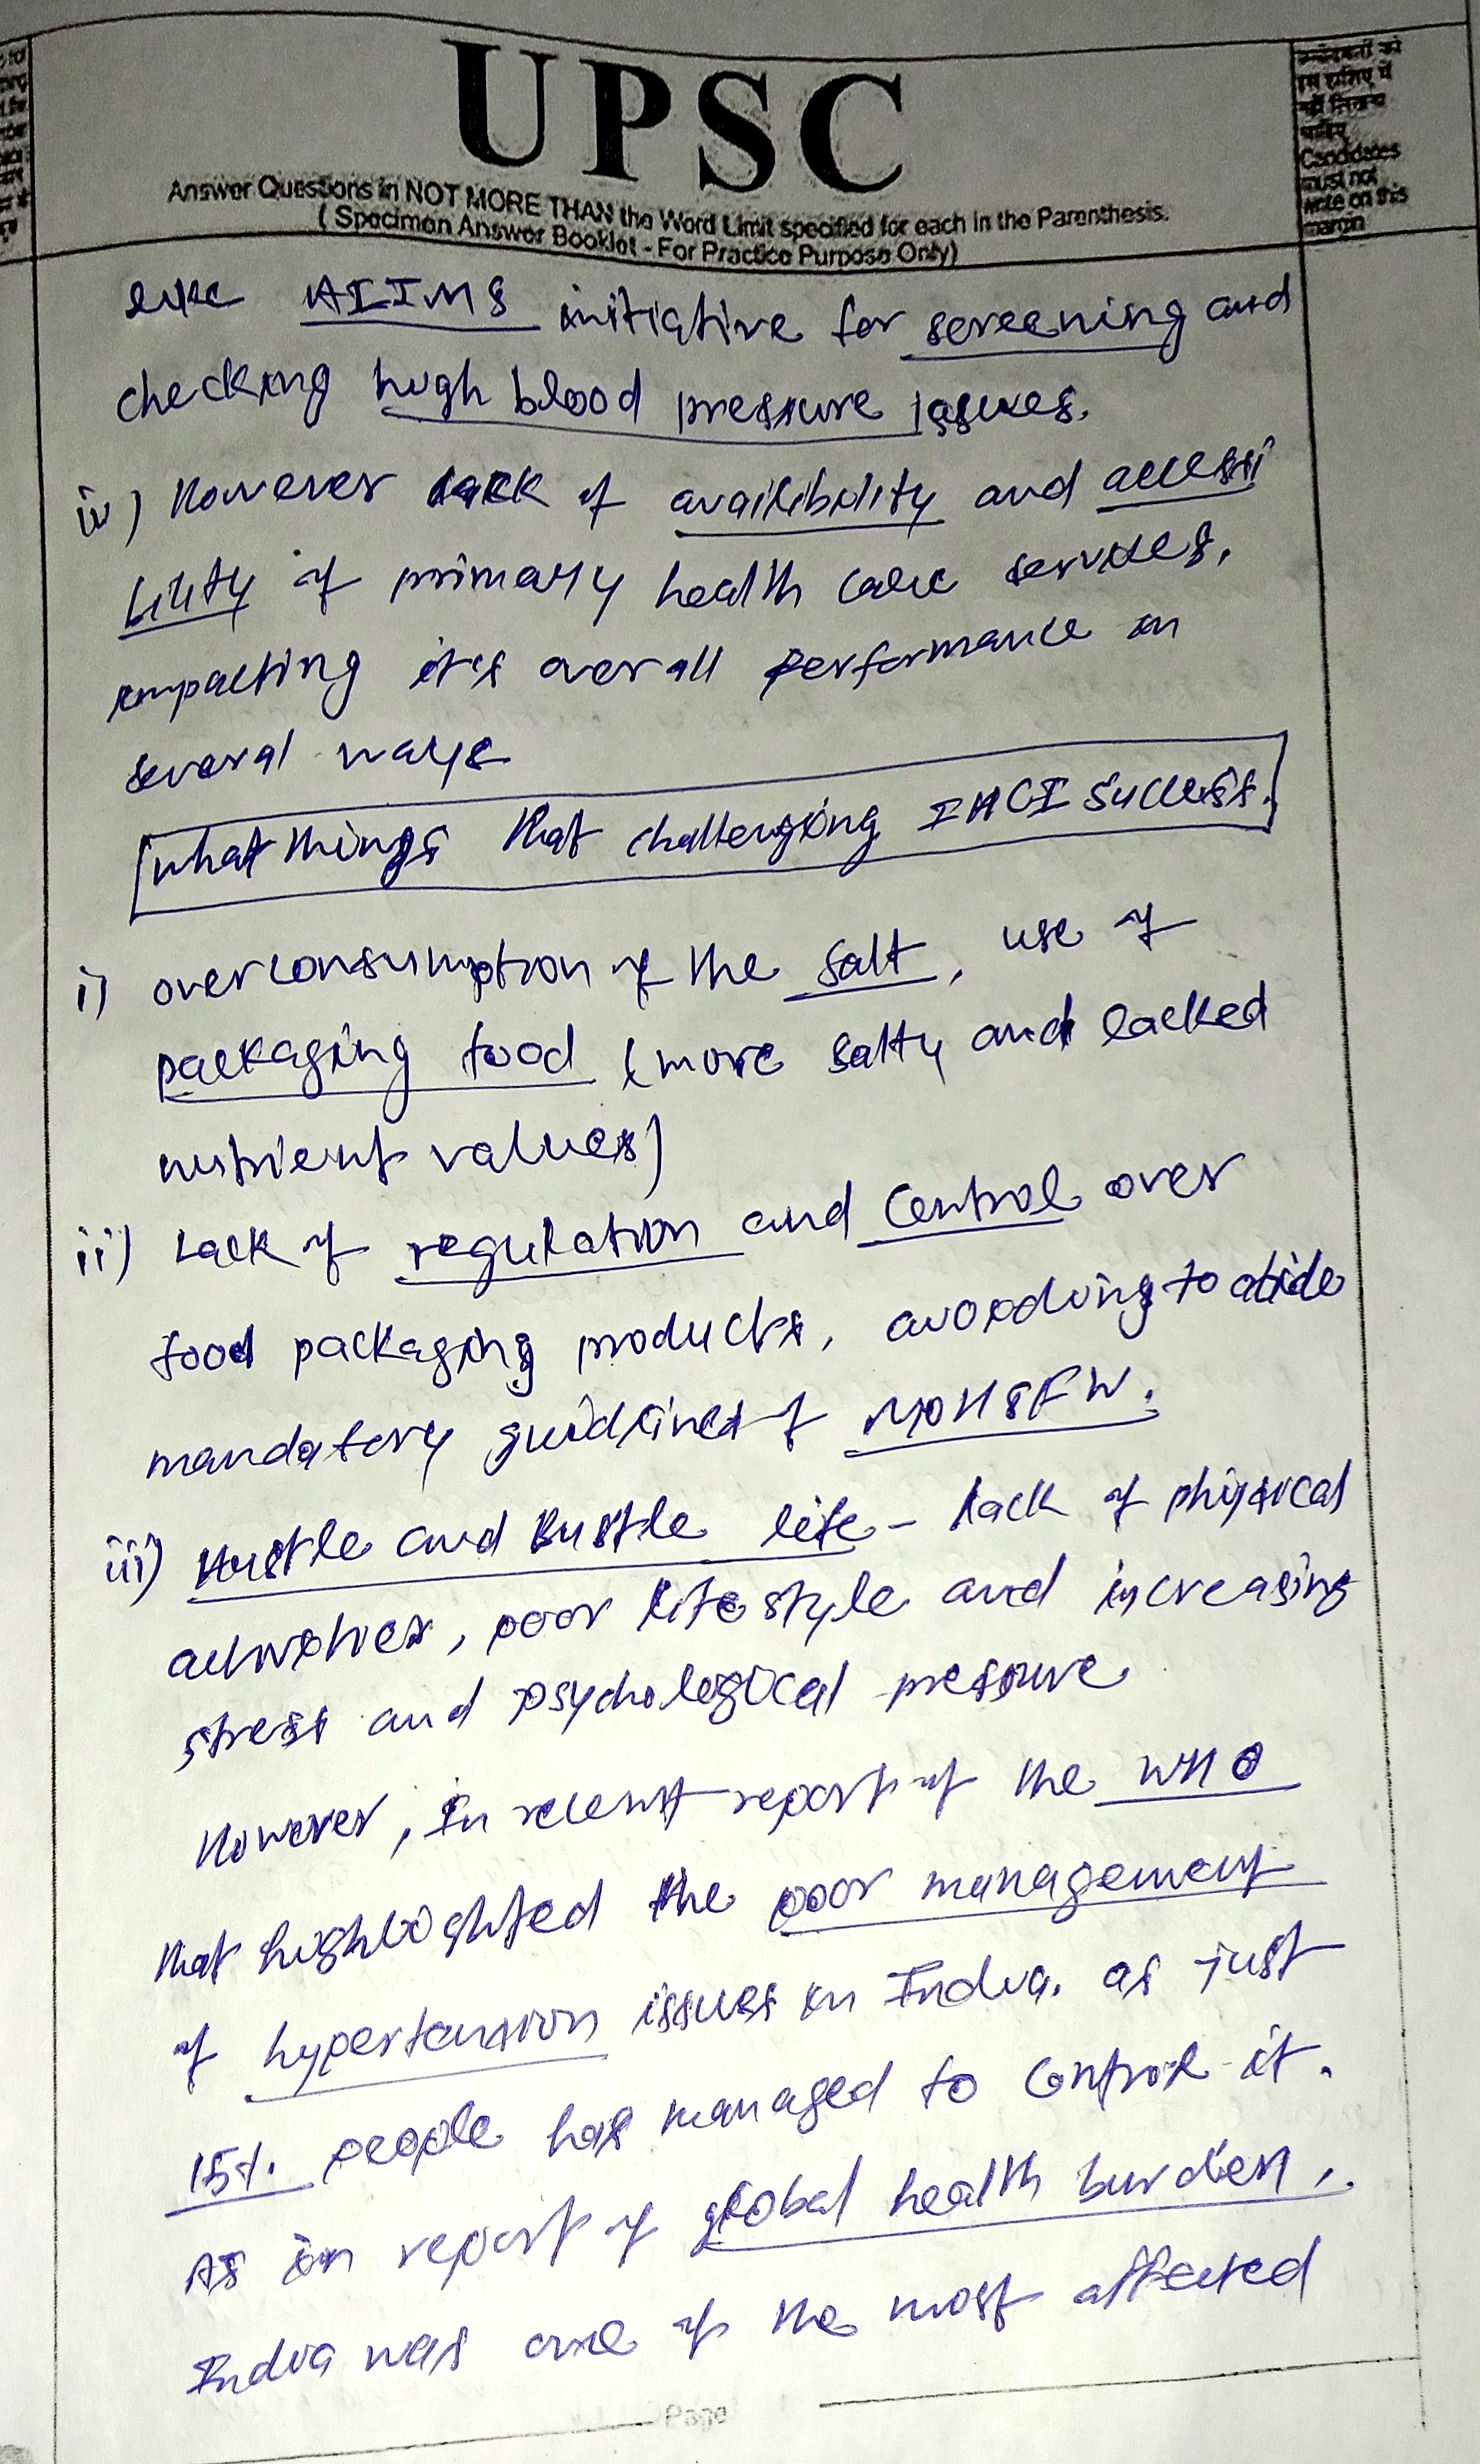 UPSC
Answer Questions in NOT MORE THAN the Word Limit specified for each in the Parenthesis.
( Specimen Answer Booklet - For Practice Purpose Only)
उम्मीदवारों को
इस हाशिए में
नहीं लिखना
चाहिए
Candidates
must not
write on this
margin
like AIIMS initiative for screening and
checking high blood pressure issues.
iv) However lack of availibility and accessi
bility of primary health care services,
impacting it's overall performance in
several ways
what things that challenging IHCI success.
i) overconsumption of the salt, use of
packaging food (more salty and lacked
nutrient values)
ii) Lack of regulation and control over
food packaging products, avoiding to abide
mandatory guidlines of MOH&FW.
iii) Hustle and Bustle life - lack of physical
activities, poor lifestyle and increasing
stress and psychological pressure
However, in recent report of the WHO
that highlighted the poor management
of hypertension issues in India. as just
15%. people has managed to control it.
As in report of global health burden,
India was one of the most affected
Page